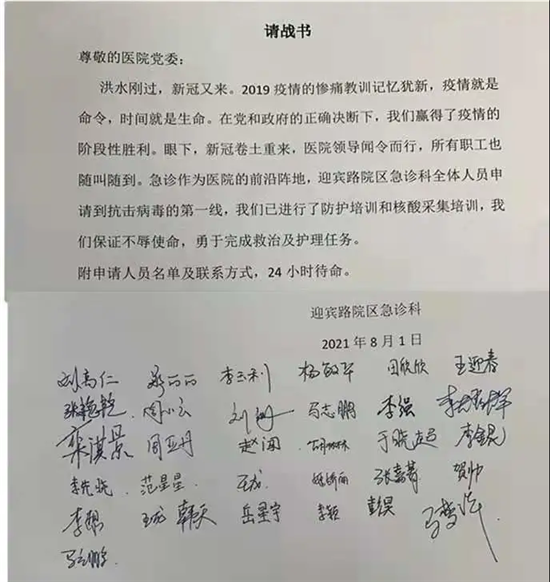 请战书
尊敬的医院党委：
洪水刚过，新冠又来。2019 疫情的惨痛教训记忆犹新，疫情就是
命令，时间就是生命。在党和政府的正确决断下，我们赢得了疫情的
阶段性胜利。眼下，新冠卷土重来，医院领导闻令而行，所有职工也
随叫随到。急诊作为医院的前沿阵地，迎宾路院区急诊科全体人员申
请到抗击病毒的第一线，我们已进行了防护培训和核酸采集培训，我
们保证不辱使命，勇于完成救治及护理任务。
附申请人员名单及联系方式，24 小时待命。
迎宾路院区急诊科
2021 年 8 月 1 日
刘高仁 田欣欣 王迎春
周小云 马志鹏 李强
栾淇景 周亚丹 于晓超
范星星 王龙 贺帅
王龙 韩天 岳星宇 李颖 彭昊